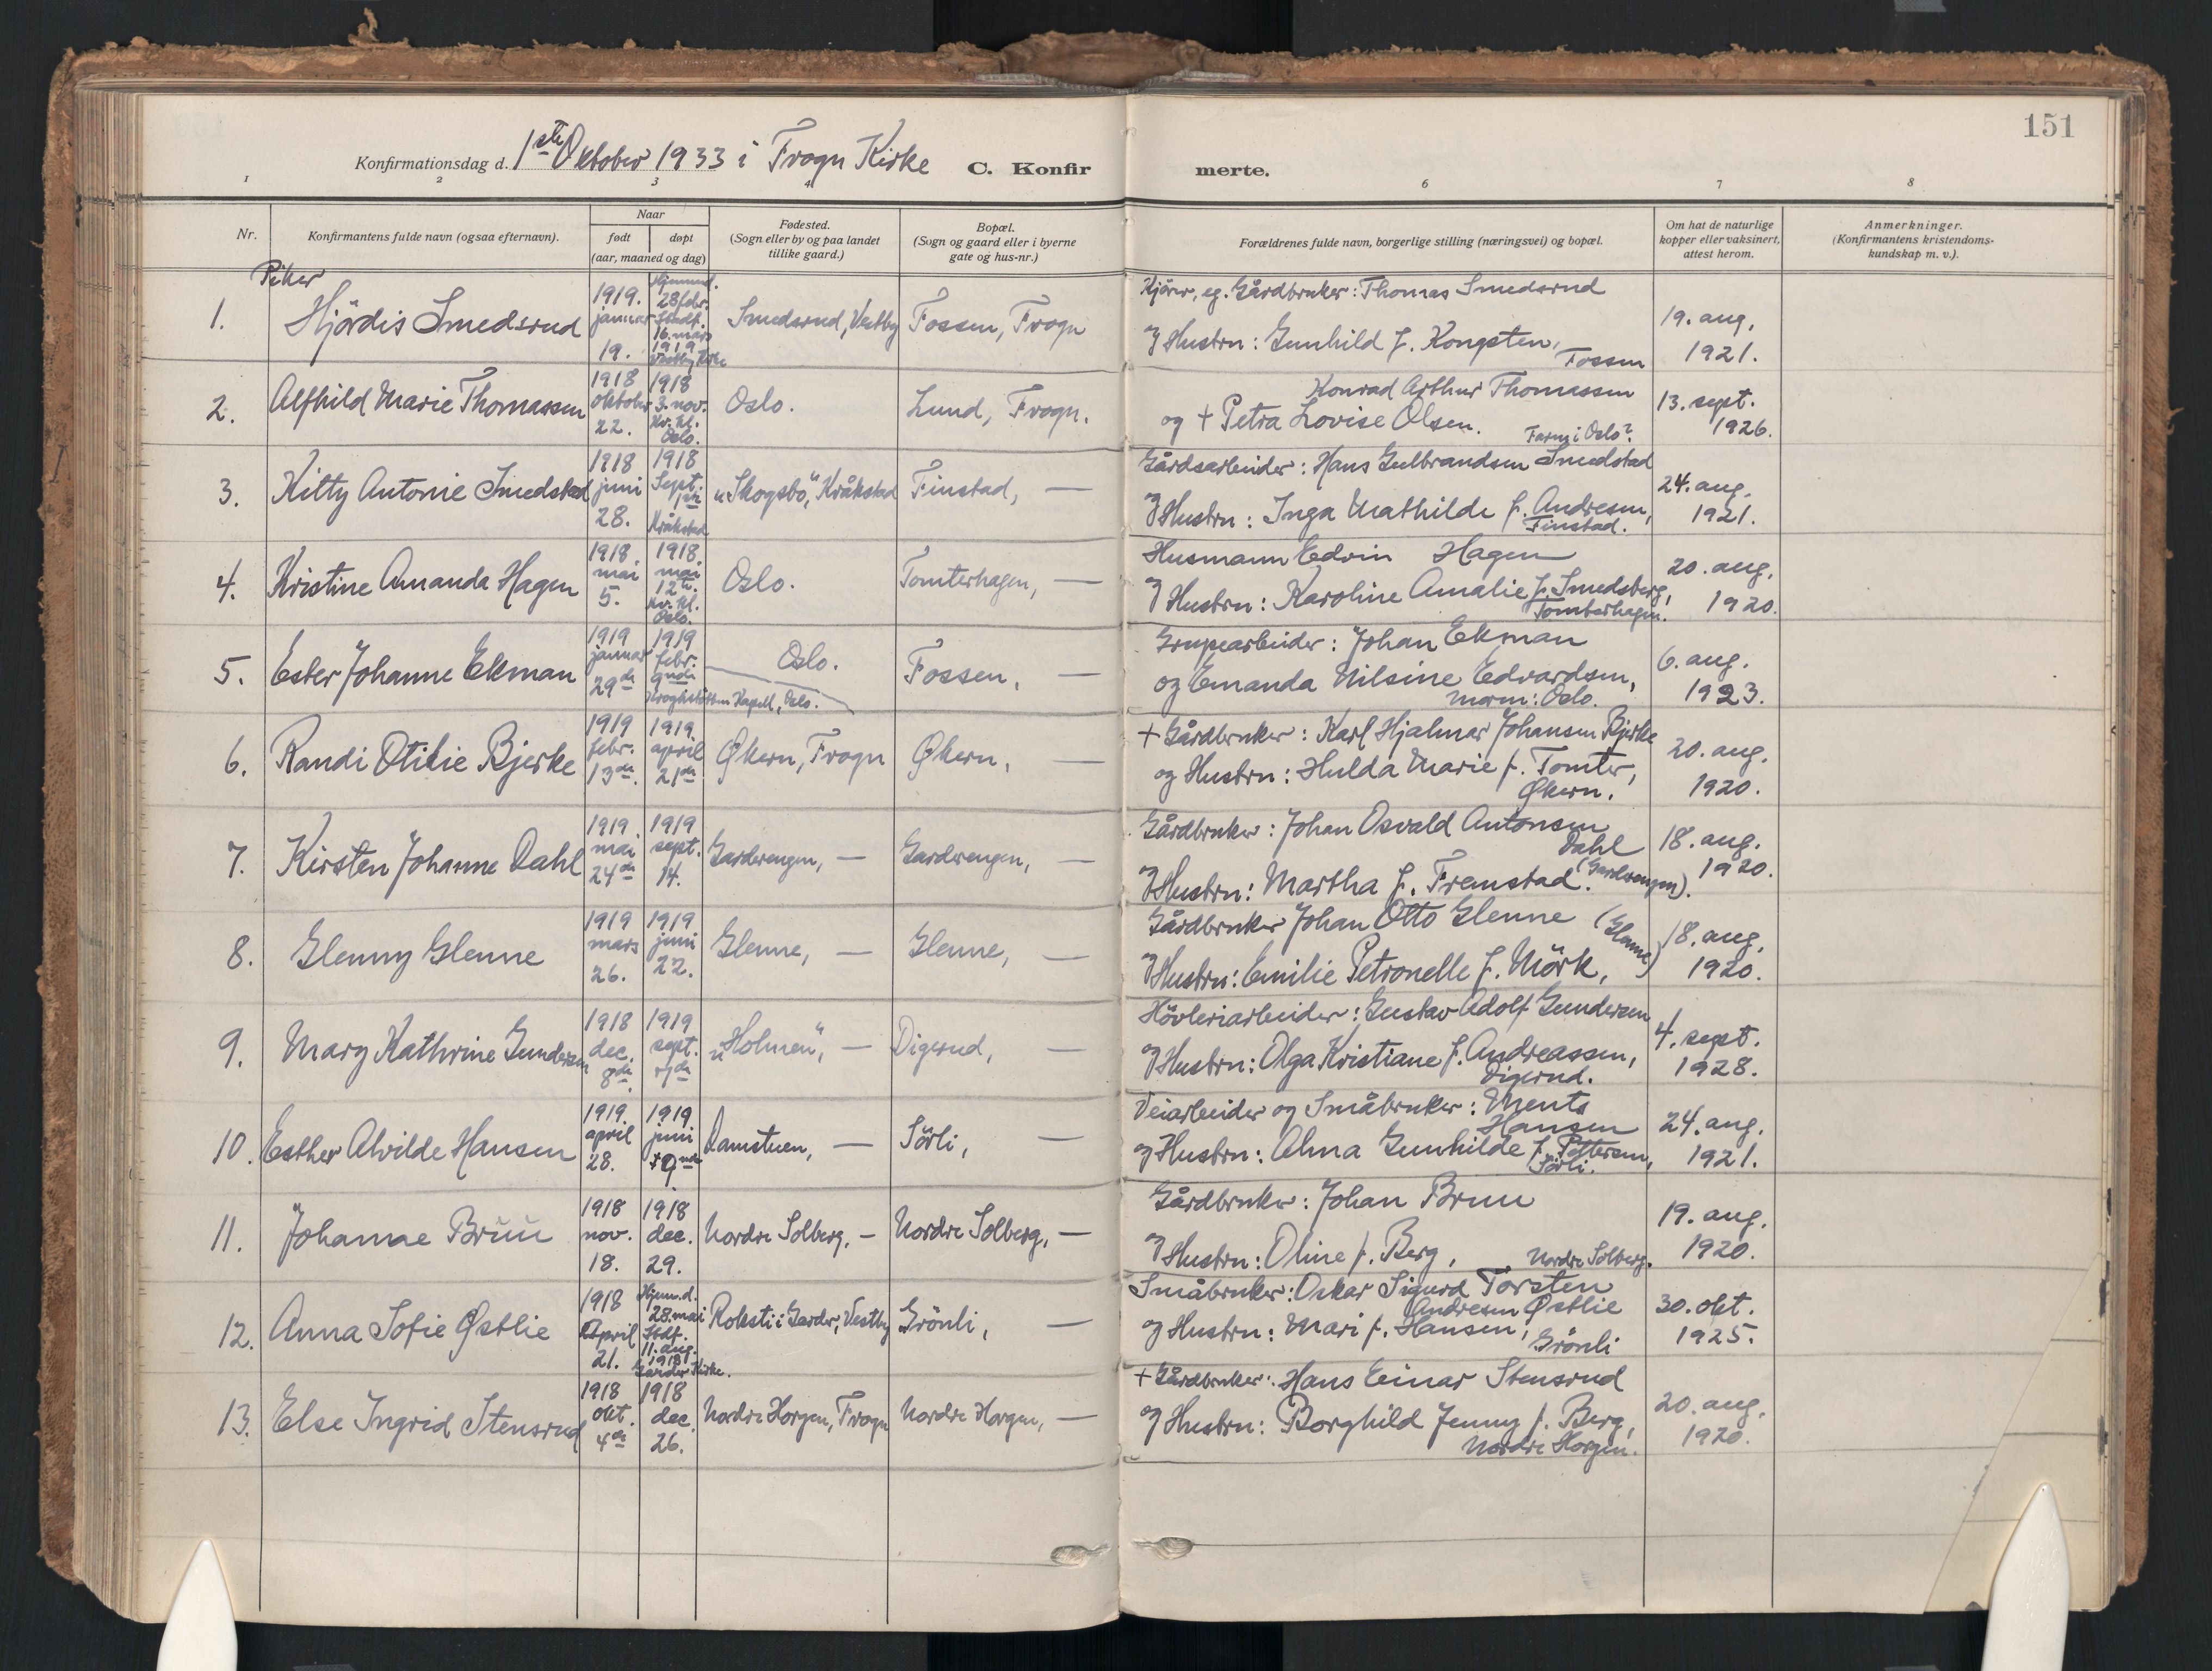 151
Konfirmationsdag d. 1ste Oktober 1933 i Frogn Kirke C. Konfirmerte.
1 2 3 4 6 7 8
Nr. Konfirmantens fulde navn (ogsaa efternavn). Naar født døpt (aar, maaned og dag) Fødested. (Sogn eller by og paa landet tillike gaard.) Bopæl. (Sogn og gaard eller i byerne gate og hus-nr.) Forældrenes fulde navn, borgerlige stilling (næringsvei) og bopæl. Om hat de naturlige kopper eller vaksinert, attest herom. Anmerkninger. (Konfirmantens kristendomskundskap m. v.).
Piker
1. Hjördis Smedsrud 1919. januar 19. Hjemmed. 28 febr. Stadf. 16. mars 1919 Vestby Kirke Smedsrud, Vestby Fossen, Frogn
eg. Gårdbruker: Thomas Smedsrud
og Hustru: Gunhild f. Kongsten, Fossen
19. aug. 1921.
2. Alfhild Marie Thomassen 1918 oktober 22. 1918 3. nov. Kv. kl. Oslo. Oslo. Lund, Frogn.
Konrad Arthur Thomassen
og + Petra Lovise Olsen. Farm i Oslo?
13. sept. 1926.
3. Kitty Antonie Smedstad 1918 juni 28. 1918 Sept. 1ste Kråkstad "Skogsbo," Kråkstad Finstad, —
Gårdsarbeider: Hans Gulbrandsen Smedstad
og Hustru: Inga Mathilde f. Andresen, Finstad.
24. aug. 1921.
4. Kristine Amanda Hagen 1918 mai 5. 1918 mai 12te. Kv. kl. Oslo. Oslo. Tomterhagen, —
Husmann Edvin Hagen
og Hustru: Karoline Amalie f. Smedsberg, Tomterhagen.
20. aug. 1920.
5. Ester Johanne Ekman 1919 januar 29de 1919 febr. 9nde Kroghstötten Kapell, Oslo. Oslo. Fossen, —
Grupearbeider: Johan Ekman
og Emanda Nilsine Edvardsen, Morm: Oslo.
6. aug. 1923.
6. Randi Otilie Bjerke 1919 febr. 13de. 1919. april 21de Økern, Frogn Økern, —
+ Gårdbruker: Karl Hjalmar Johansen Bjerke
og Hustru: Hulda Marie f. Tomter, Økern.
20. aug. 1920.
7. Kirsten Johanne Dahl 1919. mai 24de 1919 sept. 14. Garderengen, — Garderengen, —
Gårdbruker: Johan Osvald Antonsen Dahl
og Hustru: Martha f. Fremstad. (Garderengen).
18. aug. 1920.
8. Glenny Glenne 1919 mars 26. 1919 juni 22. Glenne, — Glenne, —
Gårdbruker Johan Otto Glenne (Glenne)
og Hustru: Emilie Petronelle f. Mörk,
18. aug. 1920.
9. Mary Kathrine Gundersen 1918 dec. 8de. 1919 sept. 7de "Holmen", — Digerud, —
Hövleriarbeider: Gustav Adolf Gundersen
og Hustru: Olga Kristiane f. Andreassen, Digerud.
4. sept. 1928.
10. Esther Alvilde Hansen 1919. april 28. 1919 juni 9nde Damstuen, — Sörli, —
Veiarbeider og Småbruker: Ments Hansen
og Hustru: Alma Gunhilde f. Pettersen, Sörli.
24. aug. 1921.
11. Johanne Bruu 1918 nov. 18. 1918 dec. 29. Nordre Solberg, — Nordre Solberg, —
Gårdbruker: Johan Bruu
og Hustru: Oline f. Berg, Nordre Solberg.
19. aug. 1920.
12. Anna Sofie Østlie 1918 April 21. Hjem.d. 28. mai Stdf. 11. aug. 1918 Garder Kirke. Roksti i Garder, Vestby Grönli, —
Småbruker: Oskar Sigurd Torsten Andresen Østlie
og Hustru: Mari f. Hansen, Grönli
30. okt. 1925.
13. Else Ingrid Stensrud 1918 okt. 4de 1918 dec. 26. Nordre Horgen, Frogn Nordre Horgen, —
+ Gårdbruker: Hans Einar Stensrud
og Hustru: Borghild Jenny f. Berg, Nordre Horgen.
20. aug. 1920.